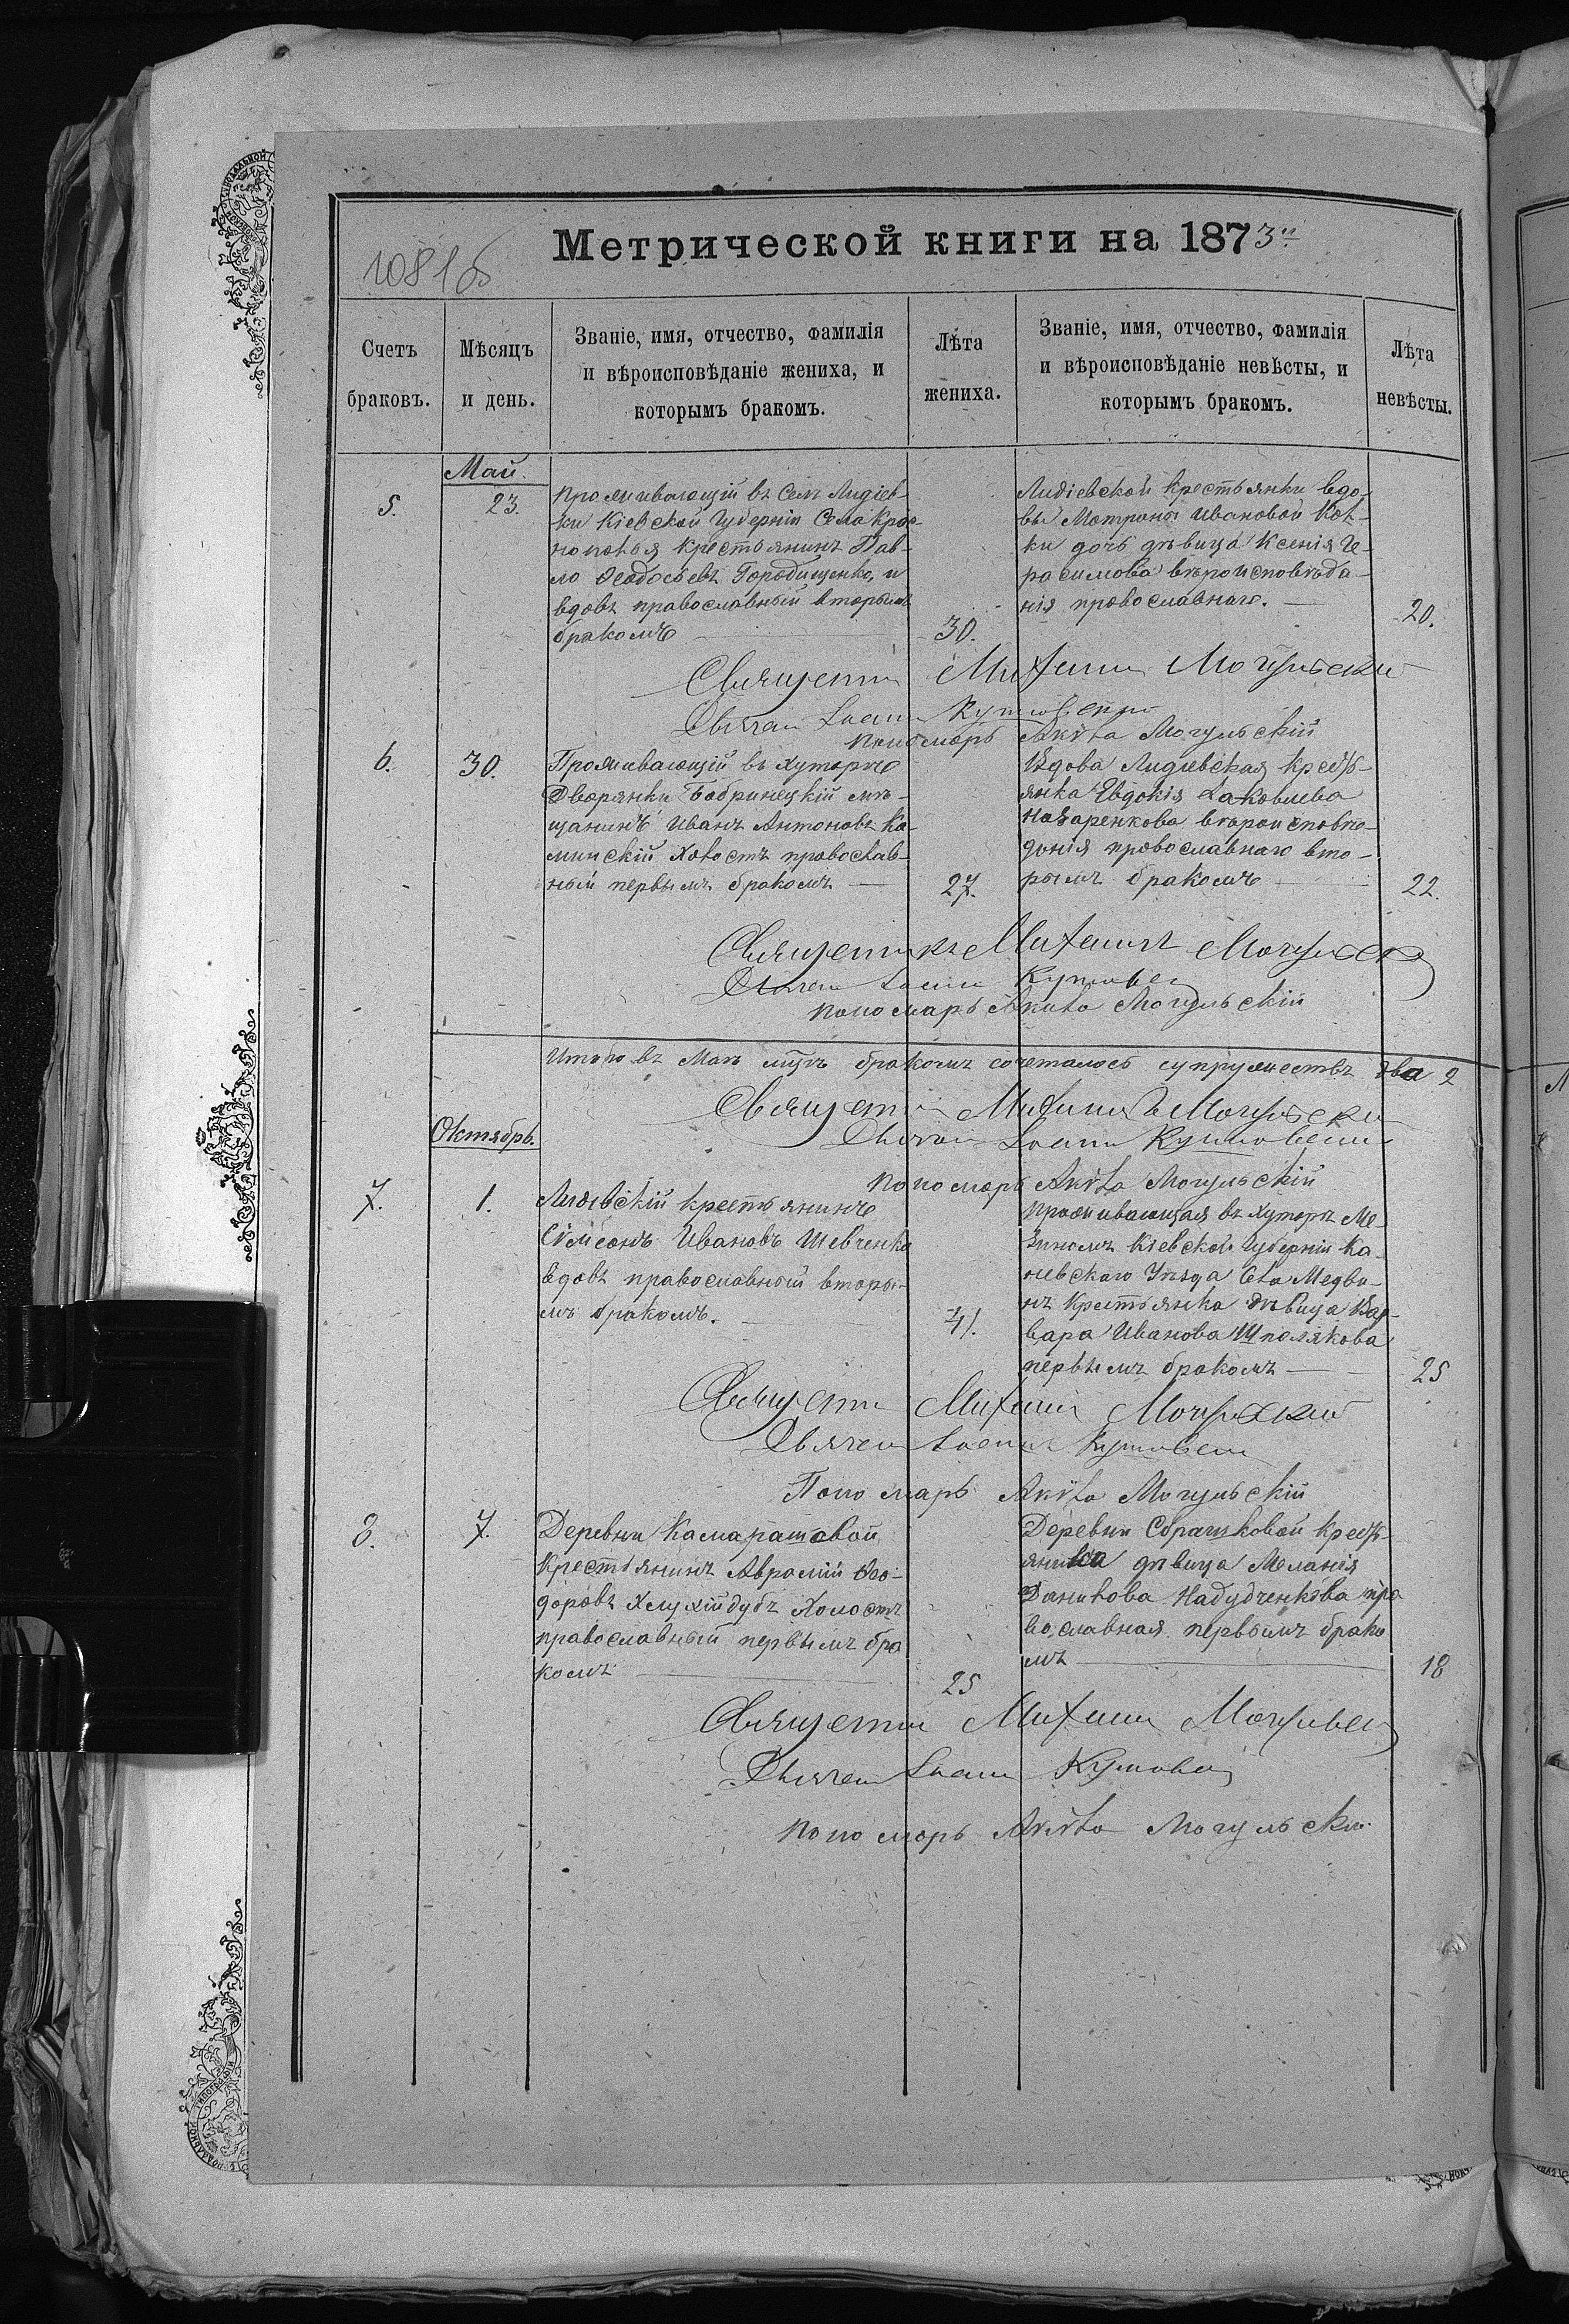 1081б
Метрической книги на 1873й
Счетъ браковъ.
Мѣсяцъ и день.
Званіе, имя, отчество, фамилія
и вѣроисповѣданіе жениха, и
которымъ бракомъ.
Лѣта жениха.
Званіе, имя, отчество, фамилія
и вѣроисповѣданіе невѣсты, и
которымъ бракомъ.
Лѣта невѣсты.
Май.
5.
23.
проживающій въ Селѣ Лидіев-
ки Кіевской Губерніи Села Крас-
нополья Крестьянинъ Пав-
ло Ѳеодосьевъ Городищенко, и
вдовъ православный вторымъ
бракомъ
30.
Лидіевской крестьянки вдо-
вы Матроны Ивановой Кол-
ки дочь дѣвица Ксенія Ге-
расимова вѣроисповѣда-
нія православнаго.
20.
Священникъ Михаилъ Могульскій
Іоаннъ
пономарь Акѵла Могульскій
6.
30.
Проживающій въ хуторѣ
Дворянки Бобринецкій мѣ-
щанинъ Иванъ Антоновъ Ка-
минскій холостъ православ-
ный первымъ бракомъ
27.
Вдова Лидіевская крестья-
янка Евдокія Яковлева
Назаренкова вѣроисповѣ-
данія православнаго вто-
рымъ бракомъ
22.
Священникъ Михаилъ Могульскій
Іоаннъ
пономарь Акила Могульскій
Итого въ Маѣ мцѣ бракомъ сочеталось супружествъ два 2
Священникъ Михаилъ Могульскій
Іоаннъ
Октябрь.
пономарь Акѵла Могульскій
7.
1.
Лидіевскій крестьянинъ
Сѵмеонъ Ивановъ Шевченко
вдовъ православный вторы-
мъ бракомъ.
41.
проживающая въ хуторѣ Ме-
зиномъ Кіевской Губерніи Ка-
невскаго Уѣзда Села Медви-
нъ Крестьянка дѣвица Вар-
вара Иванова Шполякова
первымъ бракомъ
25
Священникъ Михаилъ Могульскій
Іоаннъ
Пономарь Акѵла Могульскій
8.
7.
Деревни Камарашовой
Крестьянинъ Аврамій Ѳео-
доровъ холостъ
православный первымъ бра
комъ
25
Деревни крестья-
дѣвица Меланія
Данилова Надудченкова пра
вославная первымъ брако
мъ
18
Священникъ Михаилъ Могульскій
Іоаннъ
пономарь Акѵла Могульскій